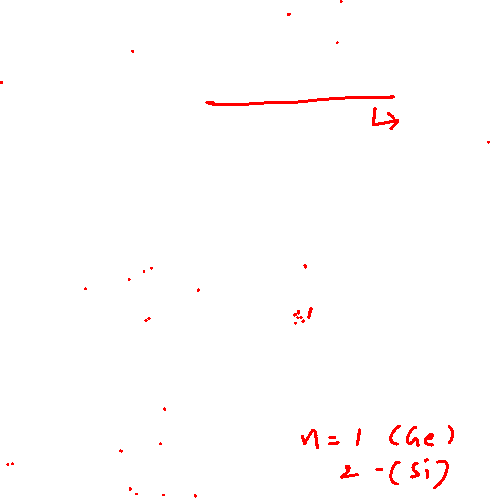 n = 1 (Ge)
2 - (Si)